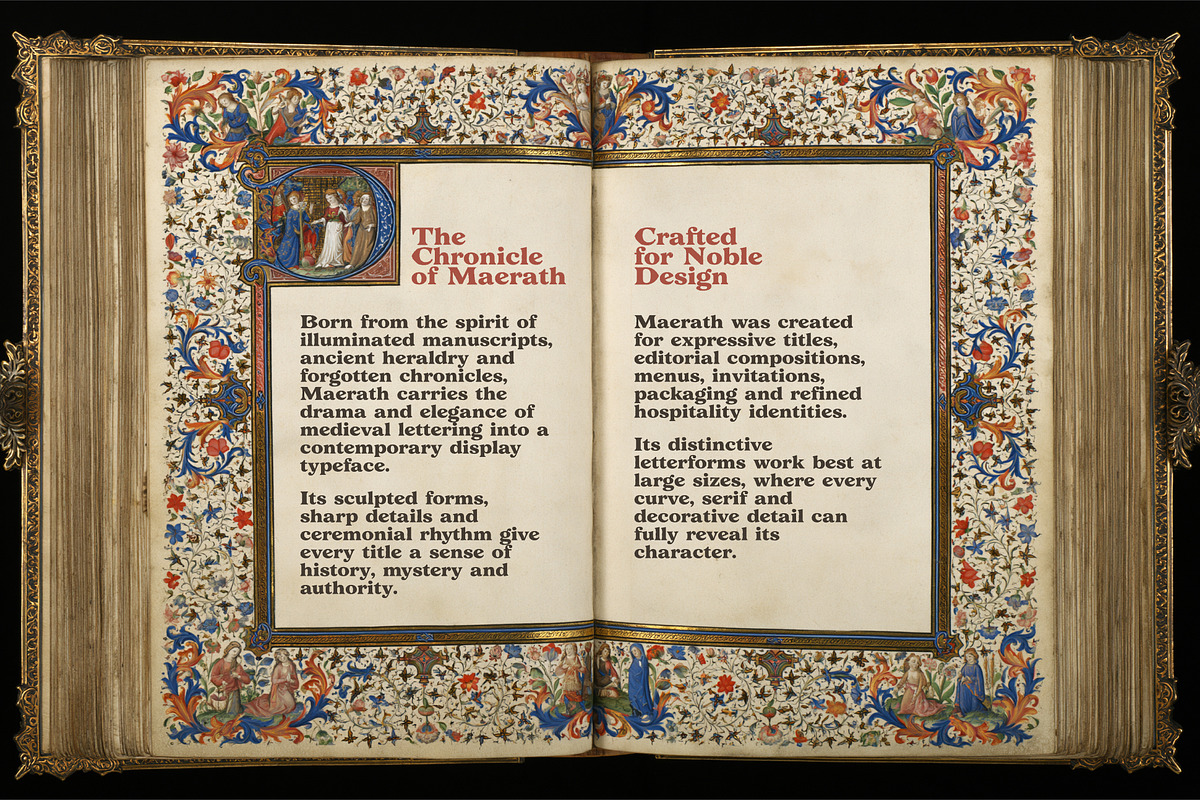 The
Chronicle
of Maerath
Born from the spirit of
illuminated manuscripts,
ancient heraldry and
forgotten chronicles,
Maerath carries the
drama and elegance of
medieval lettering into a
contemporary display
typeface.
Its sculpted forms,
sharp details and
ceremonial rhythm give
every title a sense of
history, mystery and
authority.
Crafted
for Noble
Design
Maerath was created
for expressive titles,
editorial compositions,
menus, invitations,
packaging and refined
hospitality identities.
Its distinctive
letterforms work best at
large sizes, where every
curve, serif and
decorative detail can
fully reveal its
character.